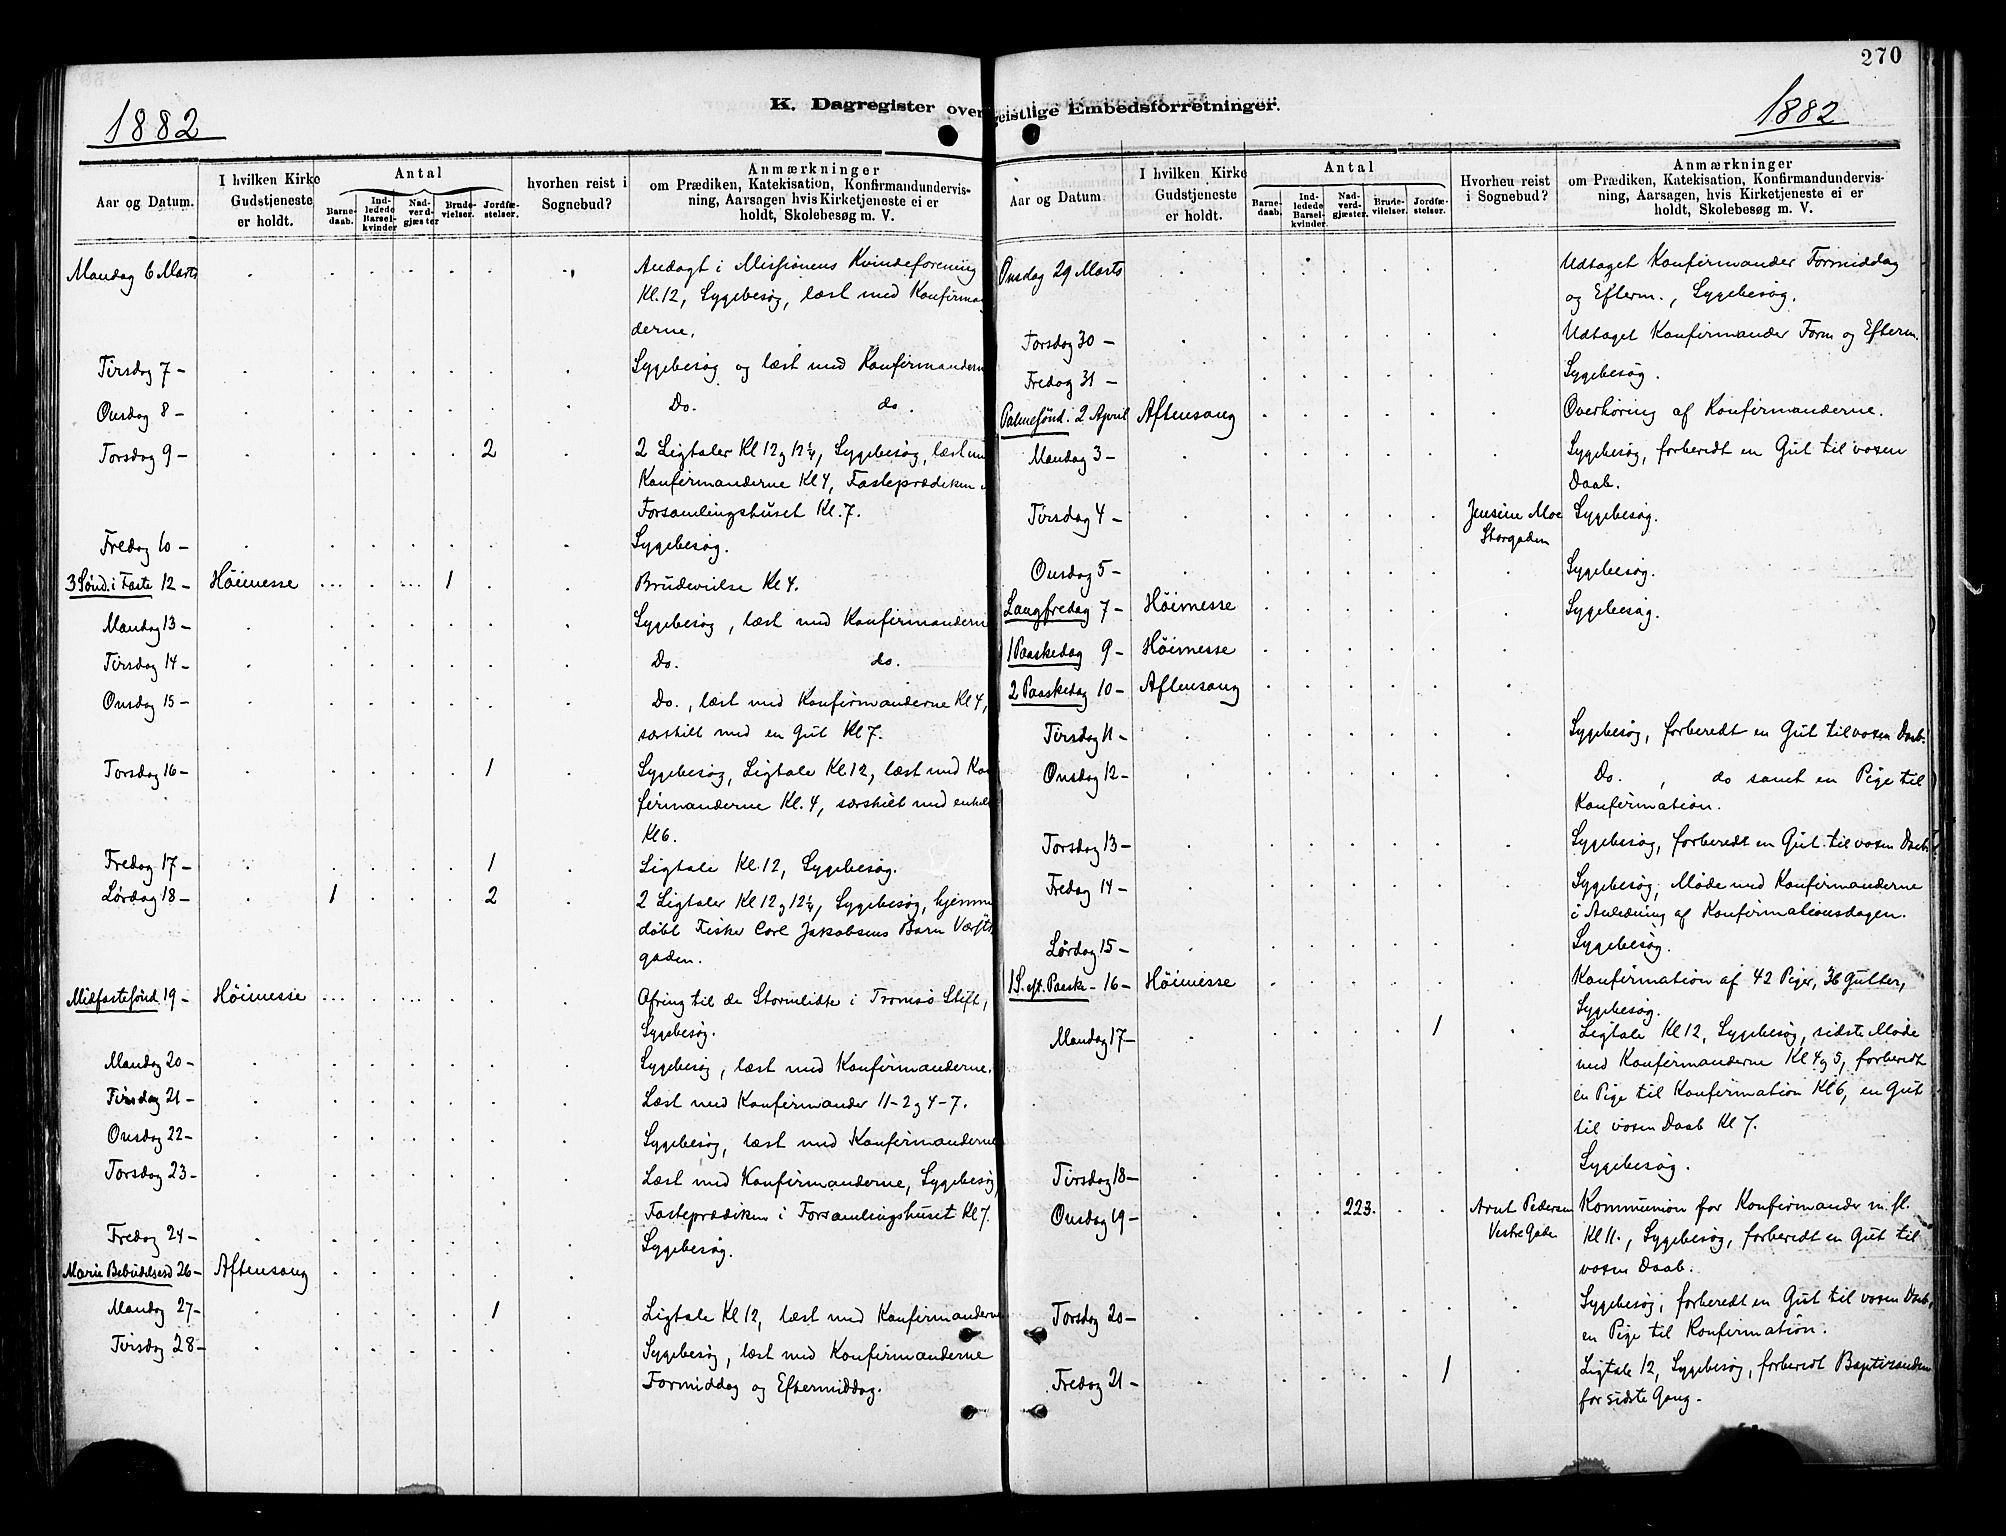 270
1882
K. Dagregister over
Aar og Datum.
I hvilken Kirke
Gudstjeneste
er holdt.
Antal
Barne-
daab.
Ind-
ledede
Barsel-
kvinder
Nad-
verd-
gjæster
Brude-
vielser.
Jordfæ-
stelser.
hvorhen reist i
Sognebud?
Anmærkninger
om Prædiken, Katekisation, Konfirmandundervis-
ning, Aarsagen hvis Kirketjeneste ei er
holdt, Skolebesøg m. V.
Mandag 6 Marts Andagt i Missionens Kvindeforening
Kl. 12, Sygebesøg, læst med Konfirman
derne.
Tirsdag 7 – Sygebesøg og læst med Konfirmandern
Onsdag 8 – Do. do.
Torsdag 9 – 2 2 Ligtaler Kl 12 og 12¼, Sygebesøg, læst m
Konfirmanderne Kl 4, Fasteprædiken
Forsamlingshuset Kl. 7.
Fredag 10 – Sygebesøg.
3 Sønd. i Faste 12 – Höimesse 1 Brudevielse Kl 4.
Mandag 13 – Sygebesøg, læst med Konfirmanderne
Tirsdag 14 – Do. do.
Onsdag 15 – Do., læst med Konfirmanderne Kl 4,
særskilt med en Gut Kl 7.
Torsdag 16 – 1 Sygebesøg, Ligtale Kl 12, læst med Kon
firmanderne Kl. 4, særskilt med enkelte
Kl 6.
Fredag 17 – 1 Ligtale Kl. 12, Sygebesøg.
Lørdag 18 – 1 2 2 Ligtaler Kl 12 og 12¼, Sygebesøg, hjemme
døbt Fisker Carl Jakobsens Barn Værfts
gaden.
Midfastesønd 19 – Höimesse Ofring til de Stormlidte i Tromsø Stift,
Sygebesøg.
Mandag 20 – Sygebesøg, læst med Konfirmanderne.
Tirsdag 21 – Læst med Konfirmander 11–2 og 4–7.
Onsdag 22 – Sygebesøg, læst med Konfirmanderne
Torsdag 23 – Læst med Konfirmanderne, Sygebesøg,
Fasteprædiken i Forsamlingshuset Kl 7.
Fredag 24 – Sygebesøg.
Marie Bebudelsesd 26 – Aftensang
Mandag 27 – 1 Ligtale Kl 12, læst med Konfirmanderne
Tirsdag 28 – Sygebesøg, læst med Konfirmanderne
Formiddag og Eftermiddag.
geistlige Embedsforretninger.
1882
Aar og Datum
I hvilken Kirke
Gudstjeneste
er holdt.
Antal
Barne-
daab.
Ind-
ledede
Barsel-
kvinder.
Nad-
verd-
gjæster.
Brude-
vielser.
Jordfæ-
stelser.
Hvorheu reist
i Sognebud?
Anmærkninger
om Prædiken, Katekisation, Konfirmandundervis-
ning, Aarsagen, hvis Kirketjeneste ei er
holdt, Skolebesøg m. V.
Onsdag 29 Marts Udtaget Konfirmander Formiddag
og Efterm., Sygebesøg.
Torsdag 30 – Udtaget Konfirmander Form og Efterm.
Fredag 31 – Sygebesøg.
Palmesønd. 2 April Aftensang Overhøring af Konfirmanderne.
Mandag 3 – Sygebesøg, forberedt en Gut til voxen
Daab.
Tirsdag 4 – Jensine Moe Sygebesøg.
Storgaden
Onsdag 5 – Sygebesøg.
Langfredag 7 – Höimesse Sygebesøg.
1 Paaskedag 9 – Höimesse
2 Paaskedag 10 – Aftensang
Tirsdag 11 – Sygebesøg, forberedt en Gut til voxen Daab.
Onsdag 12 – Do. , do samt en Pige til
Konfirmation.
Torsdag 13 – Sygebesøg, forberedt en Gut til voxen Daab.
Fredag 14 – Sygebesøg, Møde med Konfirmanderne
i Anledning af Konfirmationsdagen.
Lørdag 15 – Sygebesøg.
1 S. eft. Paaske – 16 – Höimesse Konfirmation af 42 Piger, 36 Gutter,
Sygebesøg.
Mandag 17 – 1 Ligtale Kl 12, Sygebesøg, sidste Møde
med Konfirmanderne Kl 4 og 5, forberedt
en Pige til Konfirmation Kl 6, en Gut
til voxen Daab Kl 7.
Tirsdag 18 – Sygebesøg.
Onsdag 19 – 223. Arnt Pedersen Kommunion for Konfirmander m. fl.
Vestre Gade Kl 11., Sygebesøg, forberedt en Gut til
voxen Daab.
Torsdag 20 – Sygebesøg, forberedt en Gut til voxen Daab,
en Pige til Konfirmation.
Fredag 21 – 1 Ligtale 12, Sygebesøg, forberedt Baptisanden
for sidste Gang.